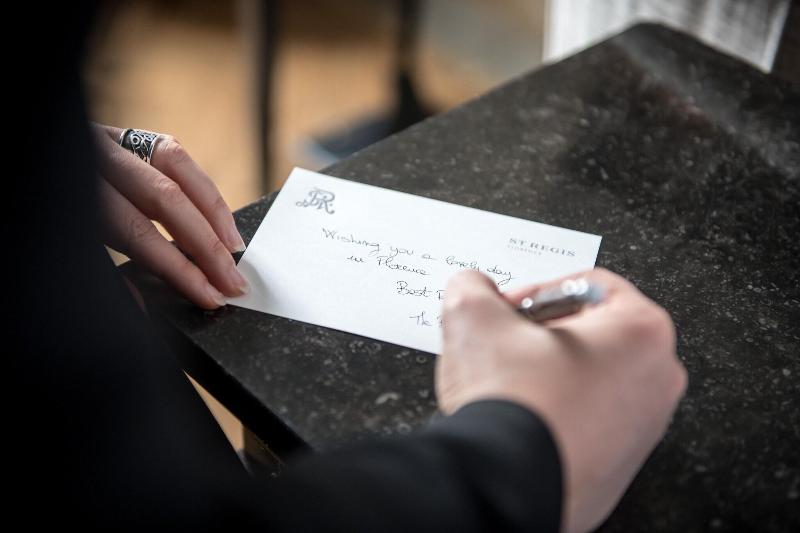 ST. REGIS
FLORENCE
Wishing you a lovely day
in Florence
Best
The